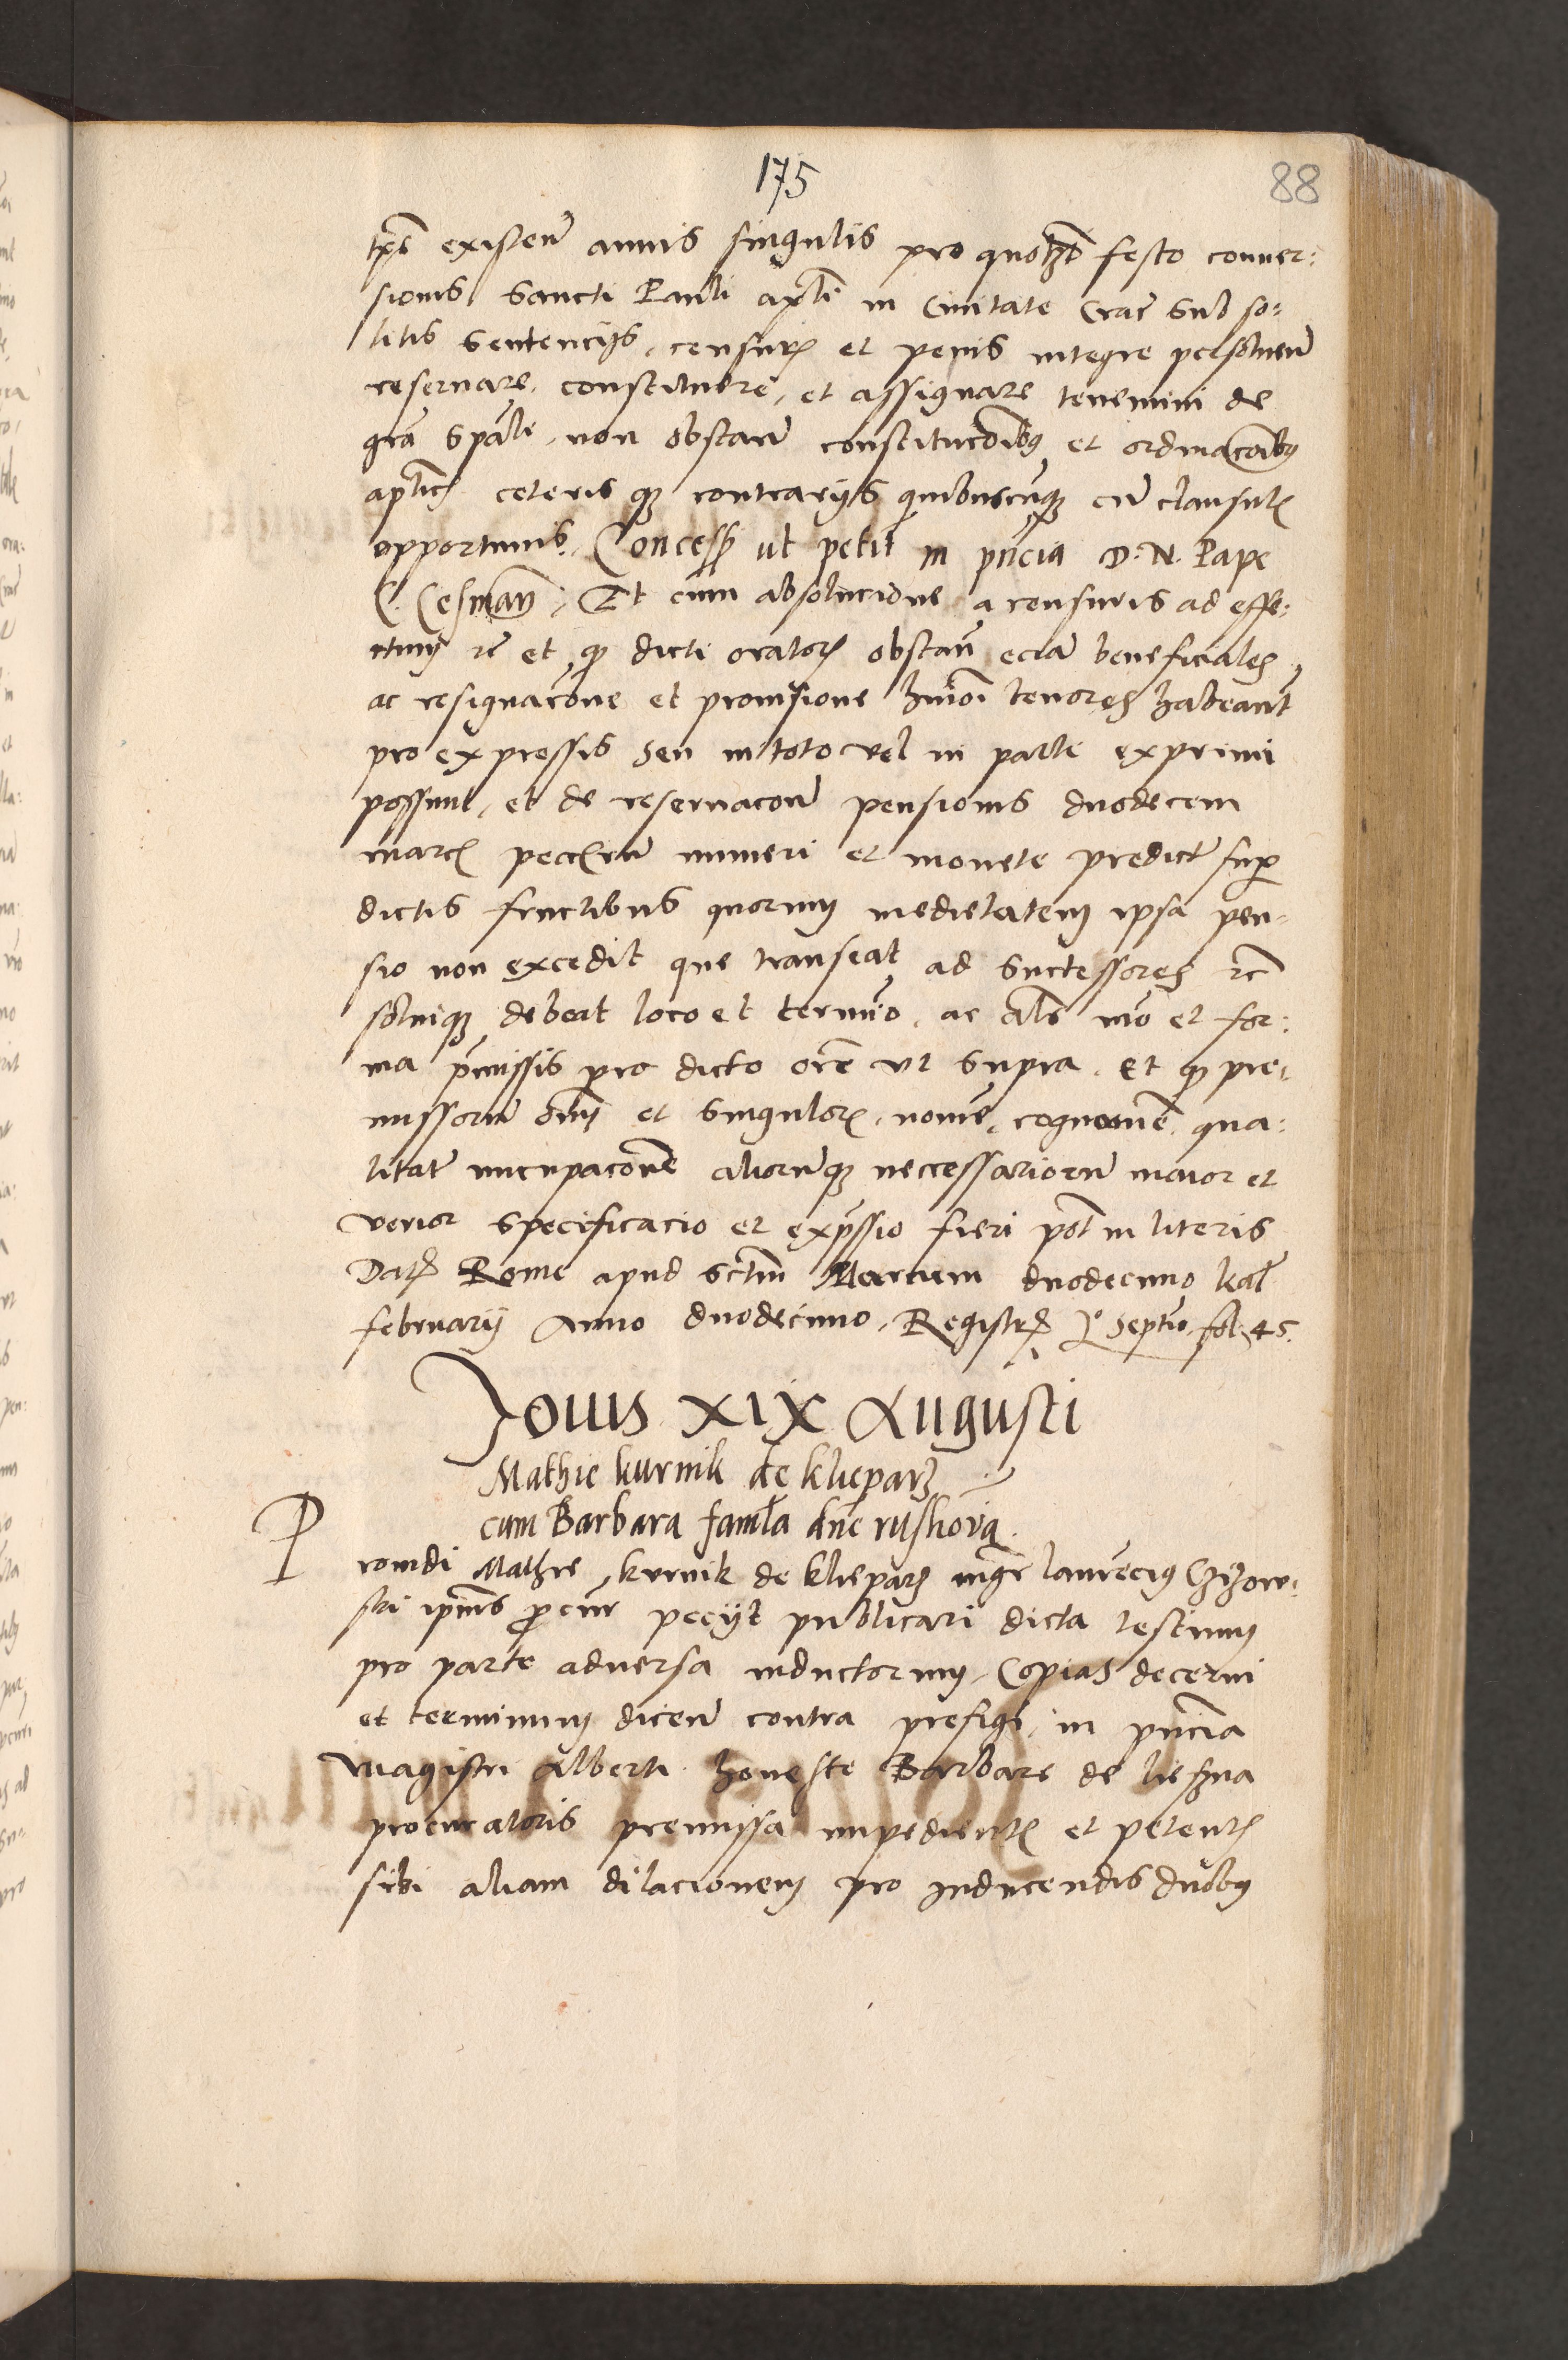 175
88
tps existen annis singulis pro quolibet festo conuer:
sionis Sancti Pauli apli in Ciuitate Crac sub so:
litis sentencijs, censuris et penis integre persoluen
reseruare, constituere, et assignare tenemini de
gra spali, non obstan constitucoibus et ordinacoibus
aplicis ceteris que contrarijs quibuscunque cu clausulis
opportunis. Concessum ut petit in pncia D. N. Pape
C. Cesman, Et cum absolucione a censuris ad effe:
ctum et que dicti oratoris obstan, ecia beneficiales
ac resignacone et prouisione hmoi tenores habeant
pro expressis seu in toto vel in parte exprimi
possint, et de reseruacone pensionis duodecem
marcis peccrum numeri et monete predict sup
dictis fructibus quorum medietatem ipsa pen:
sio non excedit que transeat ad successores etc
soluique debeat loco et termino, ac als mo et for:
ma pmissis pro dicto ore vt supra. Et que pre:
missorum oim et singulor, nome, cognome, qua:
litat nuncupacone aliorumque neccessariorum maior et
verior specificacio et expssio fieri pot in literis
Dat Rome apud sctm Marcum duodecimo kal
februarij Anno duodecimo. Registr septimo fol. 45.
Jouis XIX Augusti
Mathie kurnik de klieparz
cum Barbara famla dne ruskova
P
rouidi Mathie kurnik de klieparz mgr laurecius Czizow:
ski ipius procur peciit publicari dicta testium
pro parte aduersa inductorum, Copias decerni
et terminum dicen contra prefigi, in pncia
Magistri Alberti honeste Barbare de liesna
procuratoris premissa impedientis et petentis
sibi aliam dilacionem pro inducendis duobus